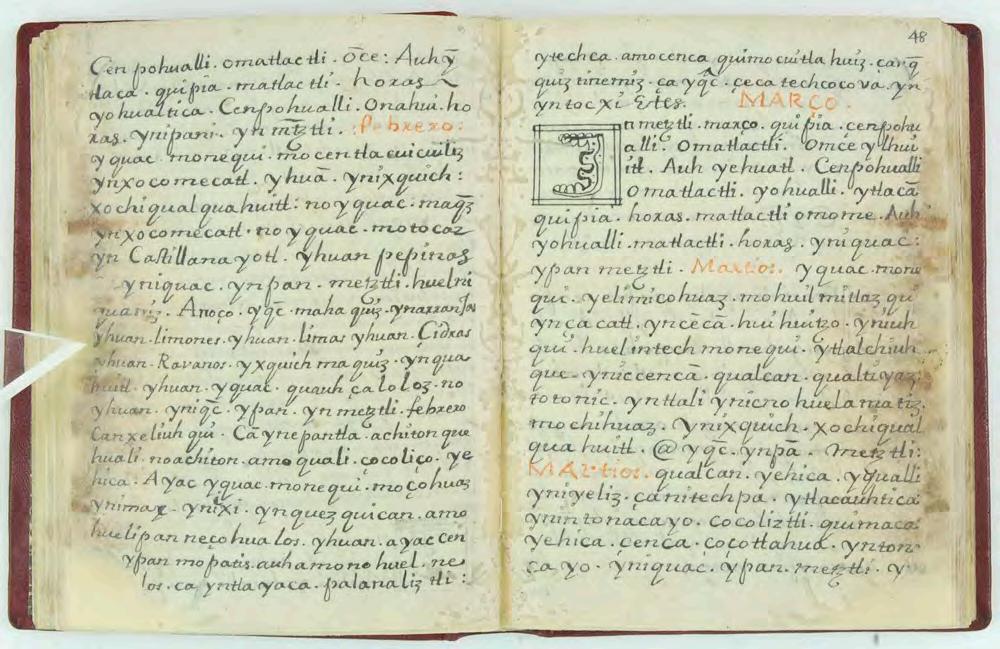 Cenpohualli. omatlactli. ōce: Auh ȳ
tlaca. quipia. matlactli. horas ~
yohualtica. Cenpohualli. onahui. ho
ras. ynipani. yn mētztli. :febrero:
yquac. monequi. mocentlacuicuiliz
ynxocomecatl. yhuā. ynixquich:
xochiqualquahuitl: no yquac. maq̄z
ynxocomecatl. no yquac. motocaz
yn Castillanayotl. yhuan pepinos
yniquac. ynpan. metztli. huelni
Anoço. yq̄c. maha quiz. ynaranjos
yhuan. limones. yhuan. limas yhuan. Cidras
yhuan. Ravanos. yxquich maquiz. ynqua
huitl. yhuan. yquac. quauhçaloloz. no
yhuan. yniq̄c. ypan. yn metztli. febrero
Canxeliuhqui. Cā ynepantla. achiton que
huali. noachiton. amo quali. çocoliço. ye
hica: Ayac yquac. monequi. moçohuaz
ynimax. ynixi. ynquezquican. amo
huelipan neçohualos. yhuan. a yac cen
ypan mopatis. auh amono huel. ne
los. ca yntlayaca. palanaliztli:
48
ytechca. amocenca quimocuitlahuiz. çarq̄
quiztinemiz. ça yq̄c. çeca techcocova. yn
yntocxi Etcs. MARÇO.
In metztli. março. quipia. cenpohu
alli. Omatlactli. Omce ylhui
itl. Auh yehuatl. Cenpohualli
omatlactli. yohualli. ytlacā
quipia. horas. matlactli omome. Auh
yohualli. matlactli. horas. yniquac:
ypan metztli. Martios. yquac. mone
qui. yelimicohuaz. mohuilmitlaz qui
ynçacatl. yncēcā. huihuitzo. yniuh
qui. huelintech monequi. ytlalchiuh
que. yniccencā. qualcan. qualtiyaz
totonic. yntlali ynicno huelamatiz.
mochihuaz. ynixquich. xochiqual
quahuitl. @ yq̄c. ynpā. metztli:
MARtios. qualcan. yehica. yqualli
yniyeliz. çanitechpa. ytlacauhtica
ynintonacayo. cocoliztli. quimaca
yehica. çença. çoçotlahua. ynton
çayo. yniquac. ypan. metztli. y